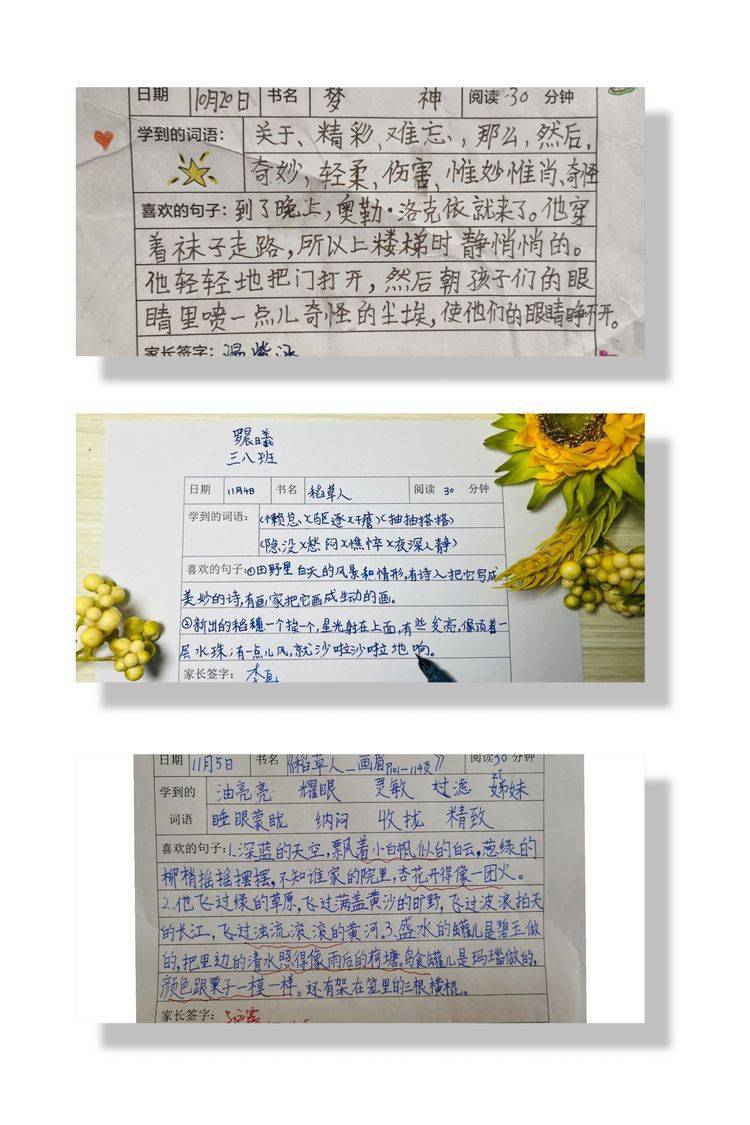 日期 10月20日 书名 梦 神 阅读 30 分钟
学到的词语： 关于、精彩、难忘、那么，然后，
奇妙，轻柔、伤害、惟妙惟肖、奇怪
喜欢的句子：到了晚上，奥勒·洛克依就来了。他穿
着袜子走路，所以上楼梯时静悄悄的。
他轻轻地把门打开，然后朝孩子们的眼
睛里喷一点儿奇怪的尘埃，使他们的眼睛睁不开。
家长签字：
晨曦
三八班
日期 11月4日 书名 稻草人 阅读 30 分钟
学到的词语： (懒怠)(驱逐)(干瘪)(抽抽搭搭)
(隐没)(愁闷)(憔悴)(夜深人静)
喜欢的句子：①田野里白天的风景和情形，有诗人把它写成
美妙的诗，有画家把它画成生动的画。
②新出的稻穗一个挨一个，星光射在上面，有些发亮，像顶着一
层水珠；有一点儿风，就沙啦沙啦地响。
家长签字：
日期 11月5日 书名 《稻草人_画眉P101-114页》 阅读30分钟
学到的 油亮亮 耀眼 灵敏 过滤 姊妹
词语 睡眼蒙眬 纳闷 收拢 精致
喜欢的句子：1.深蓝的天空，飘着小白帆似的白云，葱绿的
柳梢摇摇摆摆，不知谁家的院里，杏花开得像一团火。
2.他飞过绿的草原，飞过满盖黄沙的旷野，飞过波浪拍天
的长江，飞过浊流滚滚的黄河。3.盛水的罐儿是碧玉做
的，把里边的清水照得像雨后的荷塘。鸟食罐儿是玛瑙做的，
颜色跟栗子一模一样。还有架在笼里的三根横棍。
家长签字：